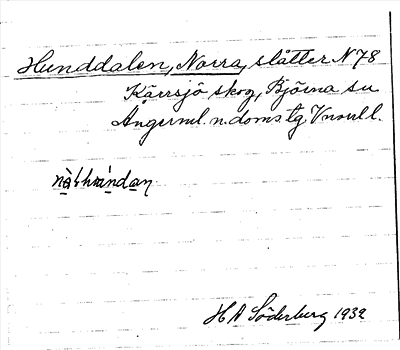 Hunddalen, Norra, slåtter N 78
Kärrsjö skog, Björna sn
Ångerml. n. doms tg. Vnorrl l.
H A Söderberg 1932